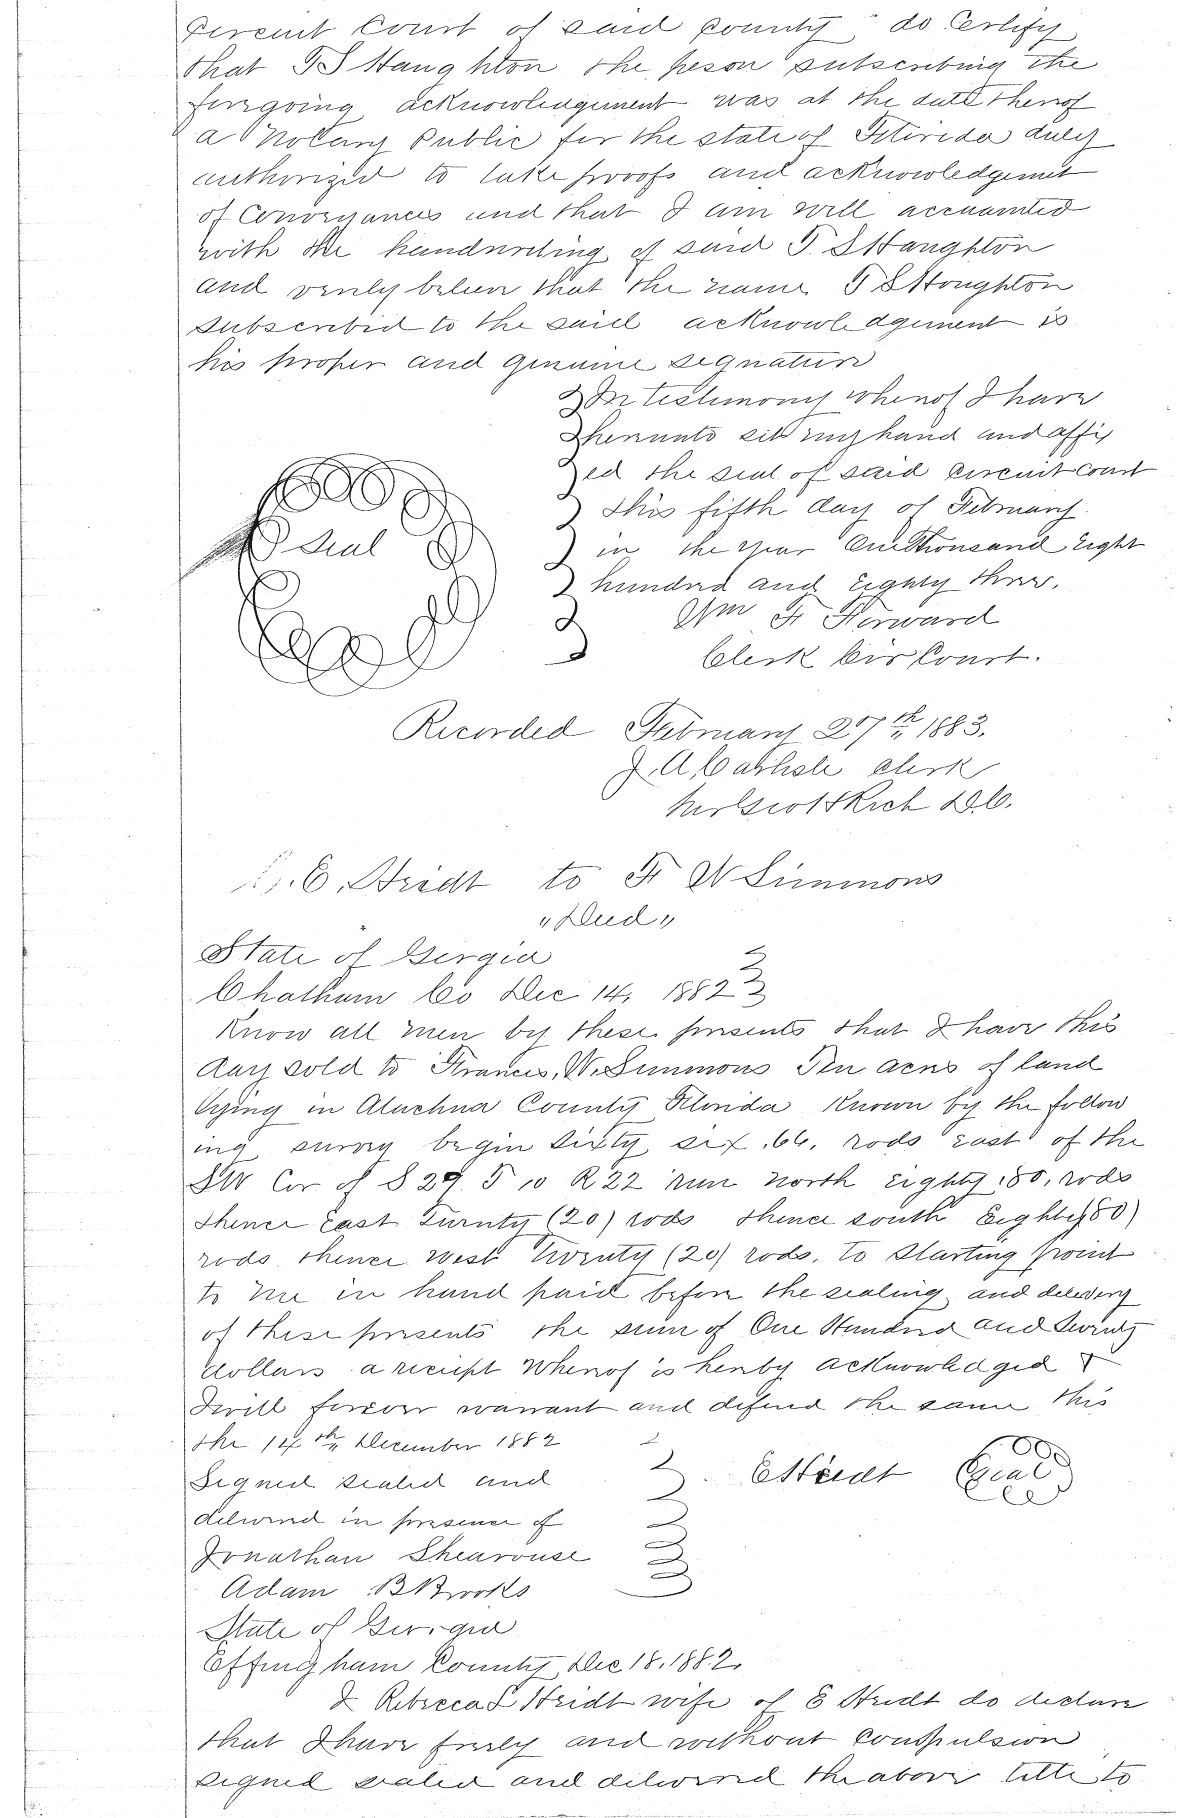 Circuit Court of said County do Certify
that T S Haughton the peson subscribing the
foregoing acknowledgement was at the date thereof
a Notary Public for the state of Florida duly
authorized to take proofs and acknowledgement
of Conveyances and that I am well accuainted
with the handwriting of said T. S Haughton
and verily believe that the name T S Houghton
subscribed to the said acknowledgement is
his proper and genuine signature
In testimony whereof I have
Thereunto set my hand and affix
ed the seal of said Circuit Court
this fifth day of February
in the year One Thousand Eight
hundred and Eighty three.
Seal
Wm F Forward
Clerk Cir Court.
Recorded February 27th 1883.
J. A. Carlisle Clerk
D.C.
E. Heidt to F W Simmons
"Deed"
State of Georgia
Chatham Co Dec 14, 1882
Know all men by these presents that I have this
day sold to Francis, W. Simmons Ten acres of land
lying in Alachua County Florida Known by the follow
ing survey begin Sixty six .66. rods east of the
SW Cor of S 29 T 10 R 22 run North Eighty .80. rods
thence East Twenty (20) rods thence south Eighty (80)
rods thence west Twenty (20) rods. to Starting point
to me in hand paid before the sealing and delivery
of these presents the sum of One Hundred and Twenty
dollars a reciept Whereof is hereby acknowledged &
I will forever warrant and defend the same this
the 14th December 1882
Signed sealed and
delivered in presence of
E Heidt Seal
Jonathan Shearouse
Adam B Brooks
State of Georgia
Effingham County, Dec 18, 1882,
I Rebecca S Heidt wife of E Heidt do declare
that I have freely and without Compulsion
signed sealed and delivered the above title to